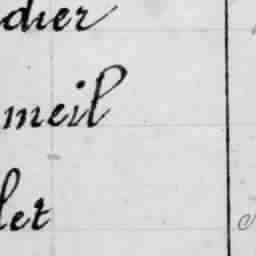 dier
meil
let